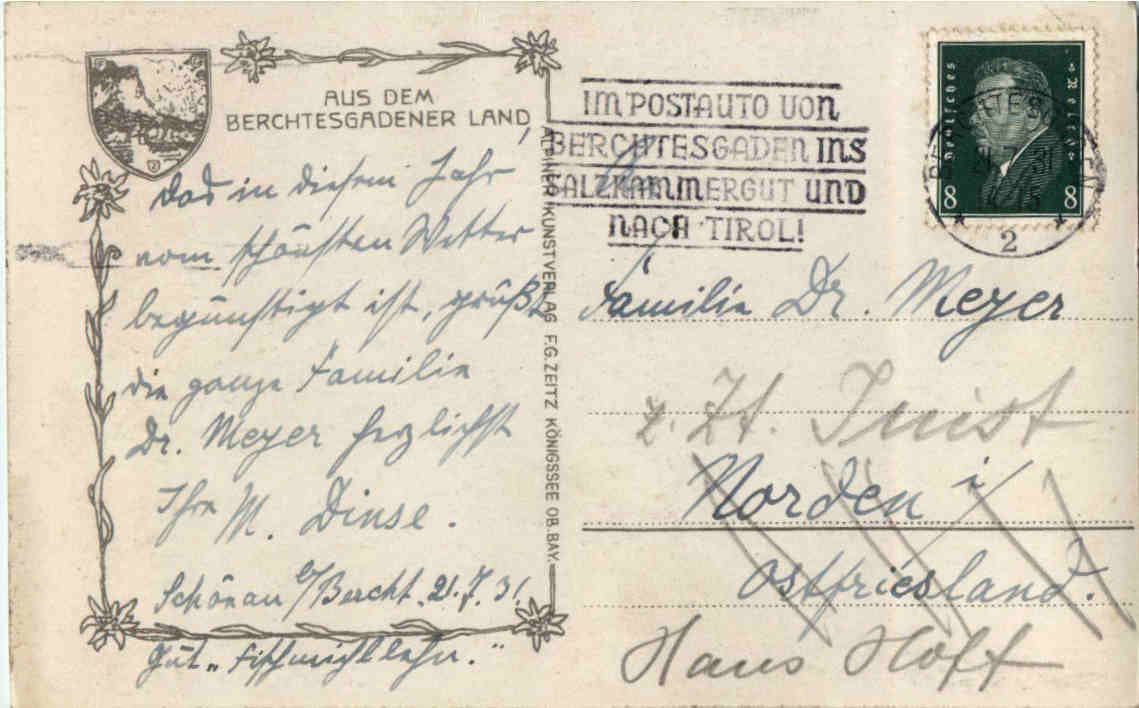 AUS DEM
BERCHTESGADENER LAND,
das in diesem Jahr
vom schönsten Wetter
begünstigt ist, grüßt
die ganze Familie
Dr. Meyer herzlichst
Ihre M. Dinse.
Schönau b/Bercht. 21.7.31.
Gut „Fischmichllehn."
ALPINER KUNSTVERLAG F.G. ZEITZ KÖNIGSSEE OB. BAY.
IM POSTAUTO VON
BERCHTESGADEN INS
SALZKAMMERGUT UND
NACH TIROL!
Deutsches Reich
8 8
2
Familie Dr. Meyer
z. Zt. Juist
Norden i/
Ostfriesland.
Haus Hoff